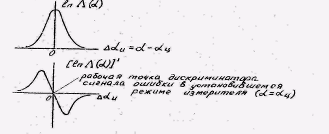 ln Λ(α)
Δαц = α - αц
0
[ln Λ(α)]'
рабочая точка дискриминатора
сигнала ошибки в установившемся
режиме измерителя (α=αц)
Δαц
0